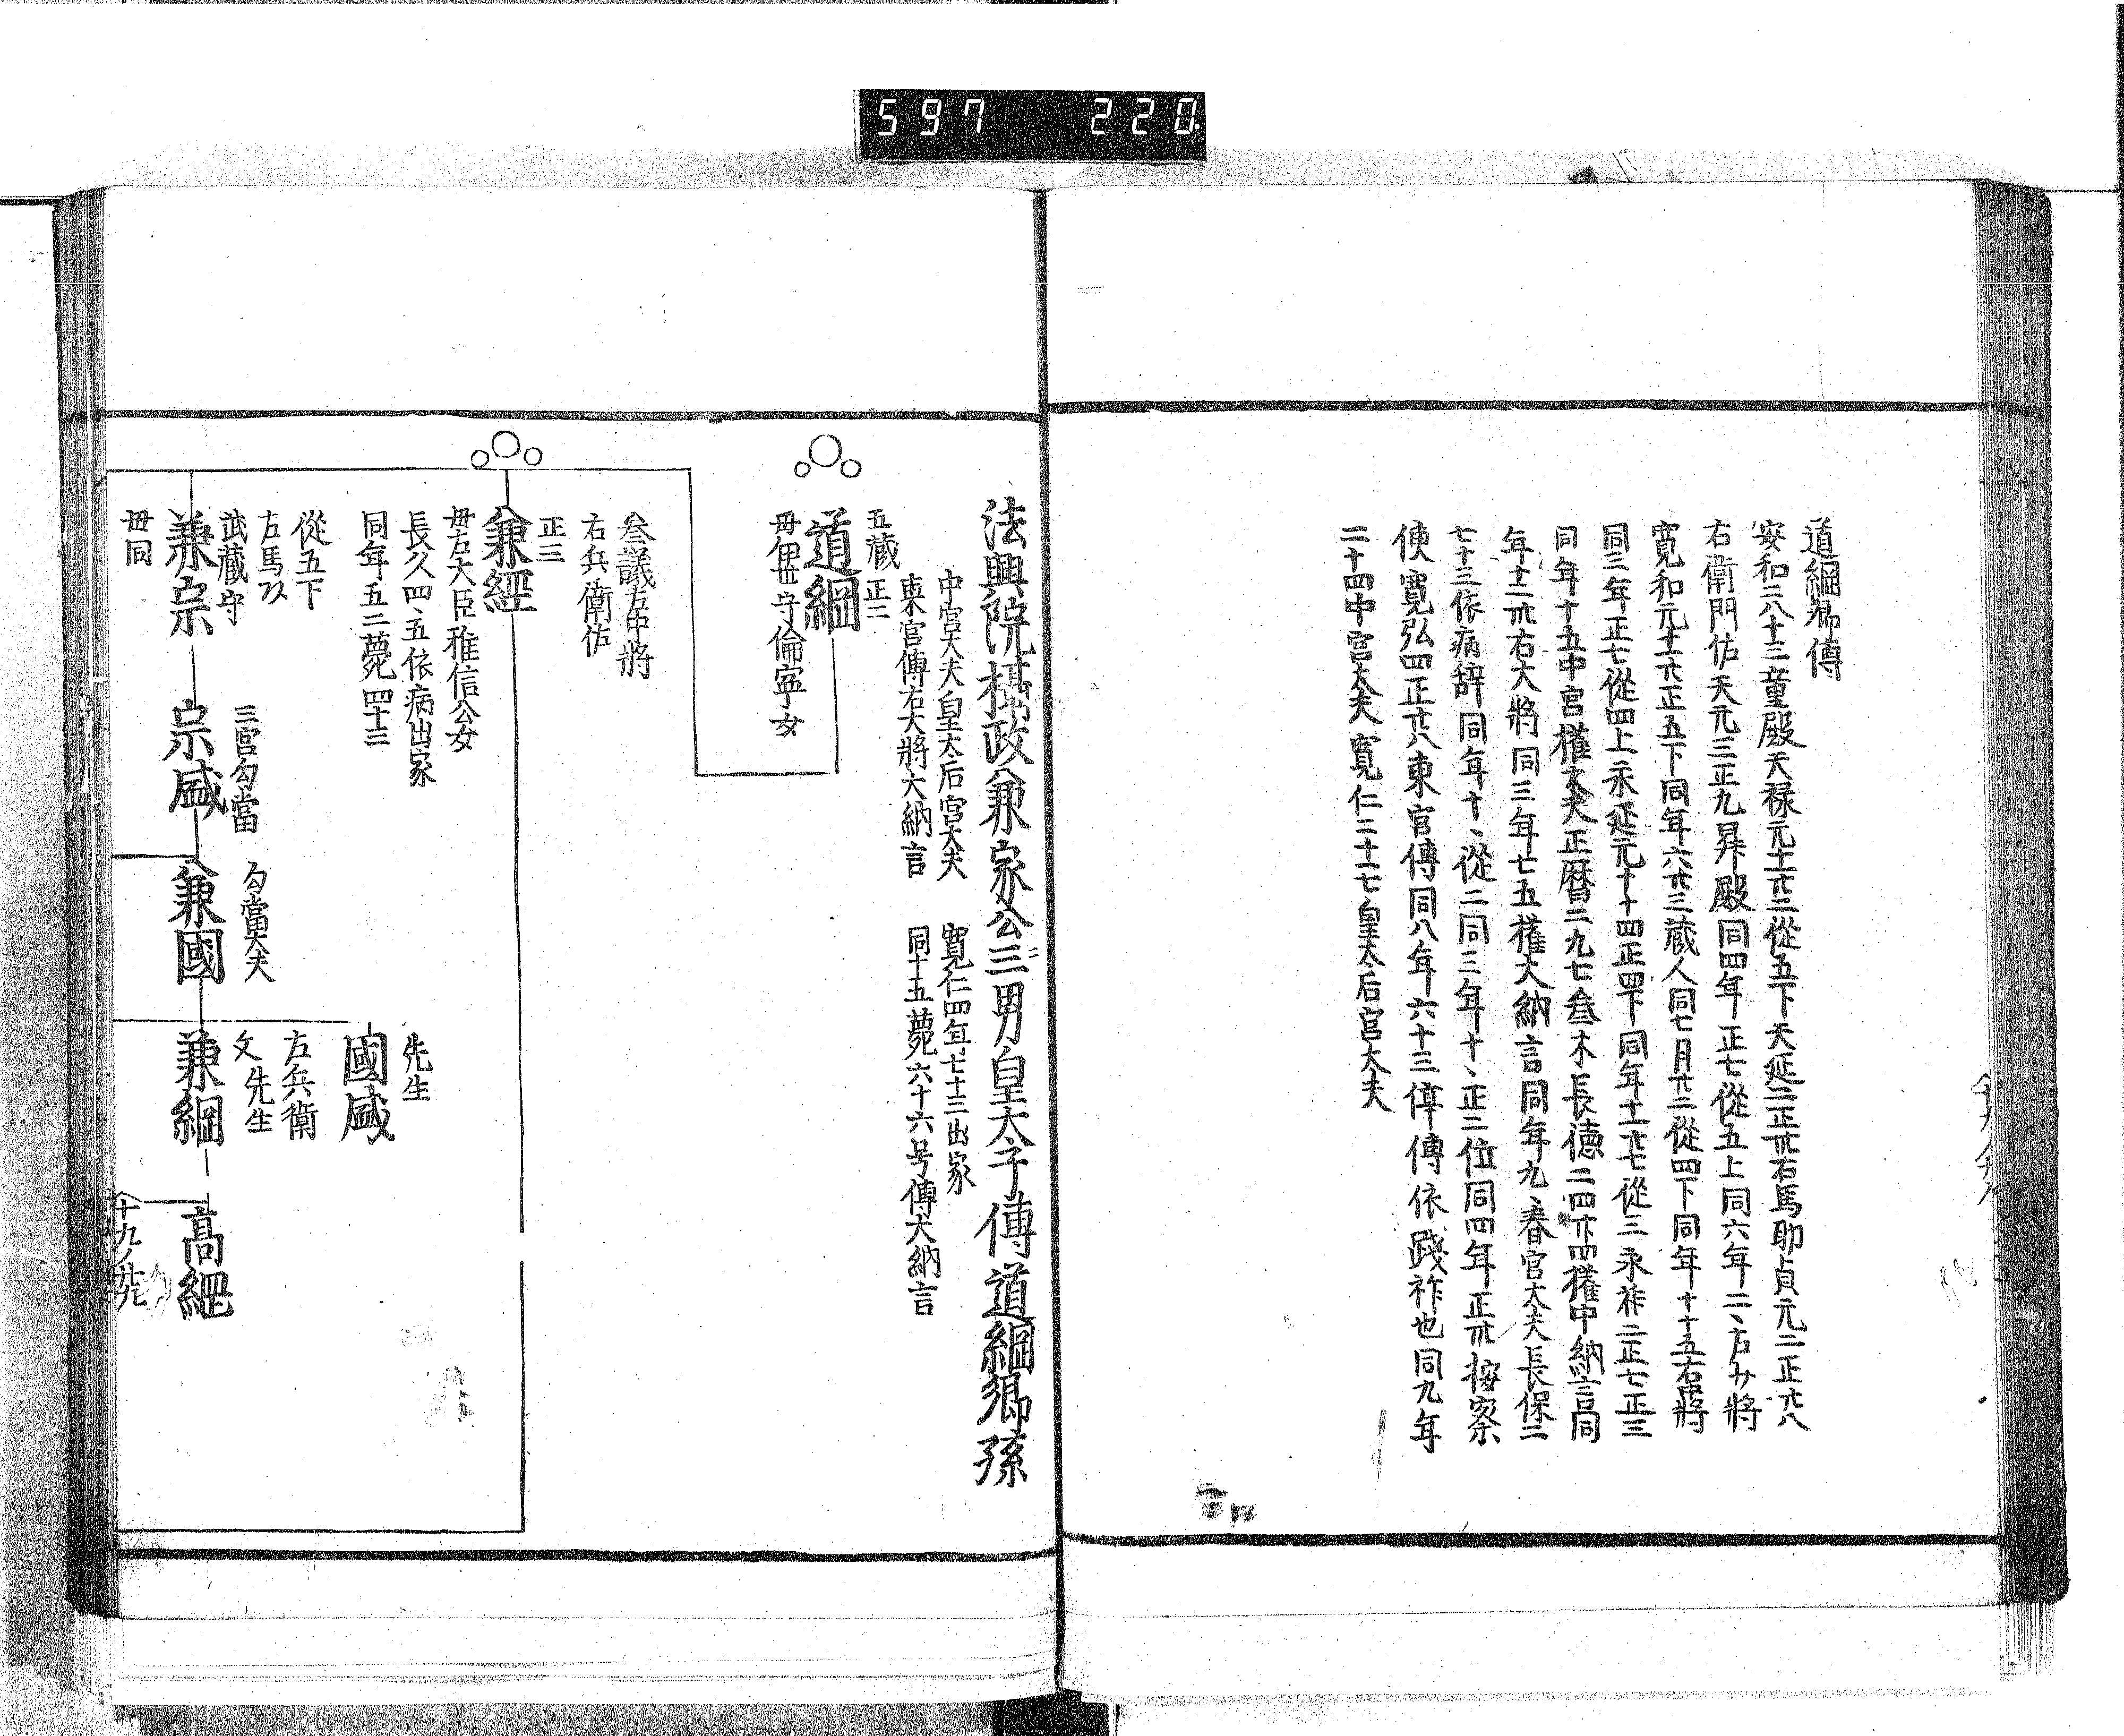 597 220
道綱卿傳
安和二八十三童殿天禄元十一廿二從五下天延二正卅右馬助貞元二正廿八
右衛門佐天元三正九昇殿同四年正七從五上同六年二、左少將
寛和元十一廿正五下同年六廿三蔵人同七月廿二從四下同年十十五右中將
同三年正七從四上永延元十十四正四下同年十一廿七從三永祚二正七正三
同年十五中宮權大夫正暦二九七叅木長徳二四廿四權中納言同
年十二卅右大將同三年七五權大納言同年九、春宮大夫長保二
七十三依病辞同年十、從二同三年十、正二位同四年正卅按察
使寛弘四正廿八東宮傅同八年六十三停傅依踐祚也同九年
二十四中宮大夫寛仁二十十七皇太后宮大夫
法興院攝政兼家公三男皇太子傅道綱卿孫
中宮大夫皇太后宮大夫
東宮傅右大將大納言
寛仁四年七十三出家
同十五薨六十六号傅大納言
五蔵 正二
道綱
母伊世守倫寧女
叅議左中將
右兵衛佐
正三
兼經
母左大臣雅信公女
長久四、五依病出家
同年五二薨四十三
從五下
左馬
武蔵守
兼宗
母同
三宮勾當
宗盛
勾當大夫
兼國
先生
國盛
左兵衛
文先生
兼綱
高經